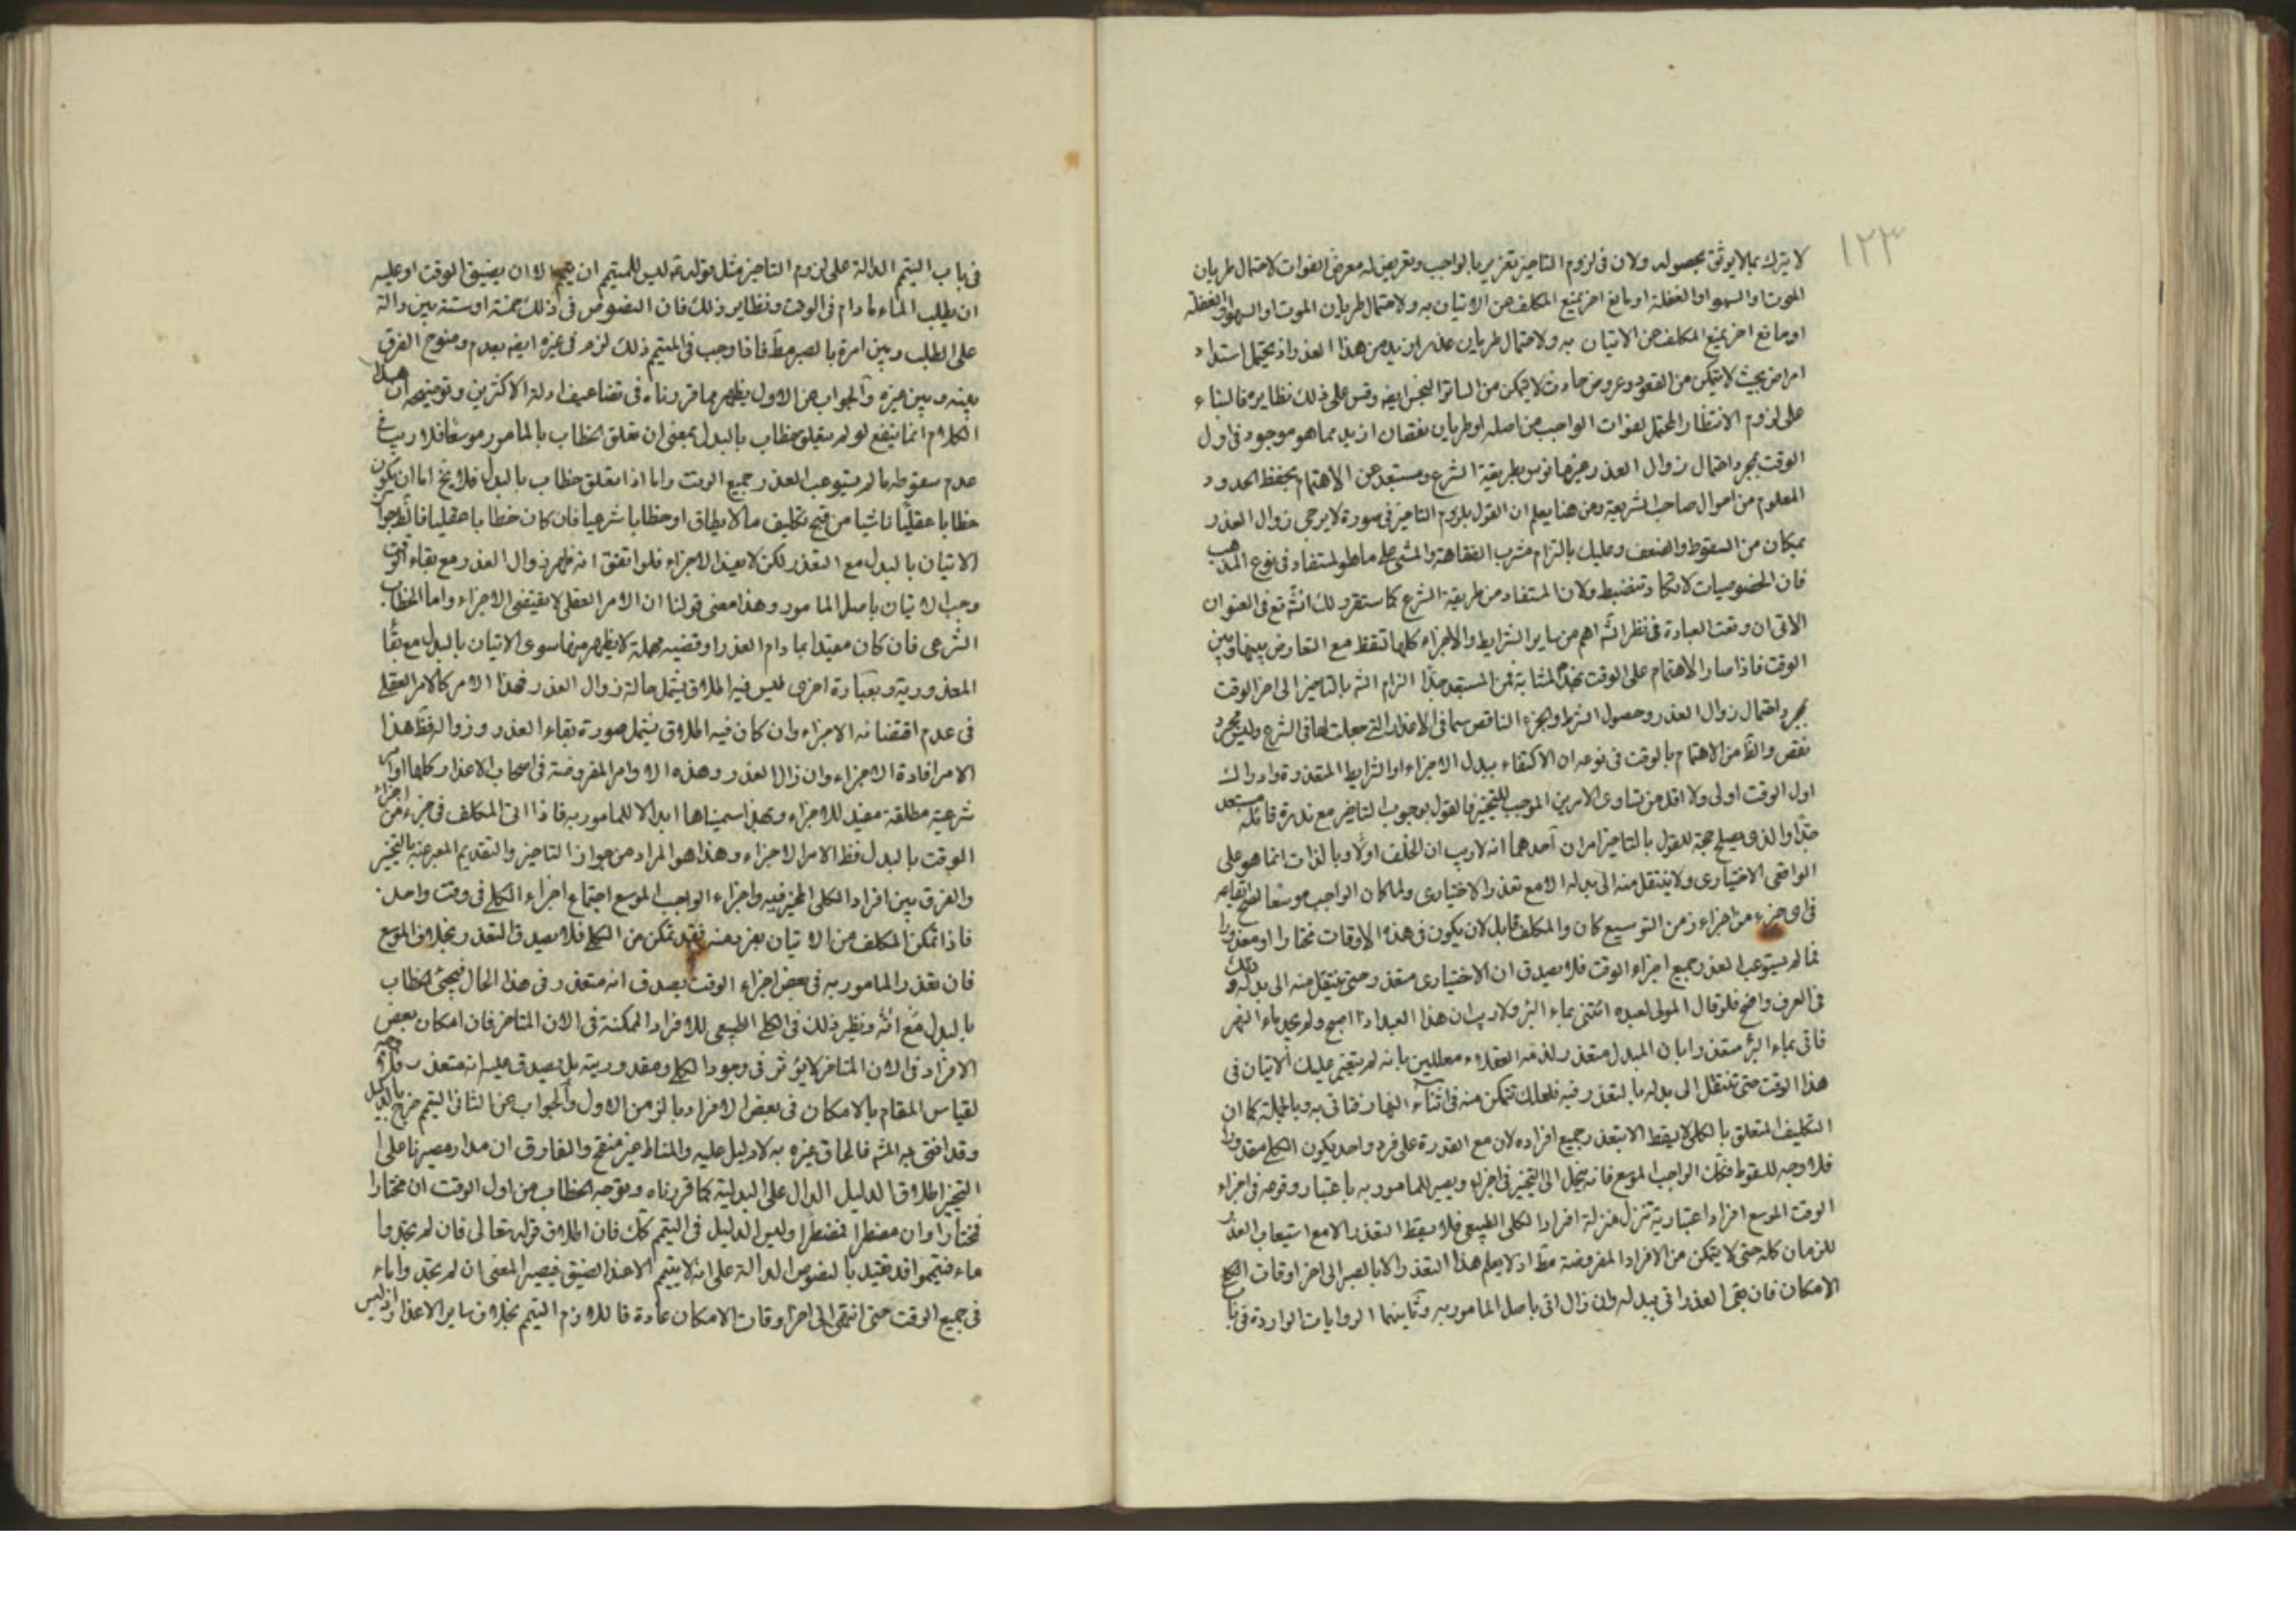 ١٢٣
لا يترك بما لا يوثق بحصوله ولان فى لزوم التاخير تغرير بالواجب وتعريض له معرض الفوات لاحتمال طريان
الموت او السهو او الغفلة او مانع اخر يمنع المكلف من الاتيان به ولاحتمال طريان الموت او السهو او الغفلة
او مانع اخر يمنع المكلف من الاتيان به ولاحتمال طريان عذر ازيد من هذا العذر اذ يحتمل اشتداد
امراض بحيث لا يتمكن من القعود وعروض حادث لا يتمكن من الساتر النجس ايضه وقس على ذلك نظايره فالبناء
على لزوم الانتظار المحتمل لفوات الواجب من اصله او طريان نقصان ازيد مما هو موجود فى اول
الوقت بمجرد احتمال زوال العذر غير مانوس بطريقة الشرع ومستبعد عن الاهتمام بحفظ الحدود
المعلوم من احوال صاحب الشريعة ومن هنا يعلم ان القول بلزوم التاخير فى صورة لا يرجى زوال العذر
بمكان من السقوط والضعف وعليك بالتزام مشرب الفقاهة والمشى على ما هو المستفاد فى نوع المذهب
فان الخصوصيات لا تكاد تنضبط ولان المستفاد من طريقة الشرع كما ستقرر لك انشه تع فى العنوان
الاتى ان وقت العبادة فى نظر الشه اهم من ساير الشرايط والاجزاء كلها تسقط مع التعارض بينها وبين
الوقت فاذا صار الاهتمام على الوقت بهذه المثابة فمن المستبعد جدا الزام الشه بالتاخير الى اخر الوقت
بمجرد احتمال زوال العذر وحصول الشرط والجزء الناقص سيما فى الاعذار التى جعلت لها فى الشرع وليس مجرد
نقص والظ من الاهتمام بالوقت فى نوعه ان الاكتفاء ببدل الاجزاء او الشرايط المتعذرة وادراك
اول الوقت اولى ولا اقل من تساوى الامرين الموجب للتخيير فالقول بوجوب التاخير مع ندرة قائله مستبعد
جدا والذى يصلح حجة للقول بالتاخير امران احدهما انه لا ريب ان الخلف اولا وبالذات انما هو على
الواقعى الاختيارى ولا ينتقل منه الى بدله الا مع تعذر الاختيارى ولما كان الواجب موسعا يصح ايقاعه
فى اى جزء من اجزاء زمن التوسيع كان والمكلف قابل لان يكون فى هذه الاوقات مختارا او معذورا
فما لم يستوعب العذر جميع اجزاء الوقت فلا يصدق ان الاختيارى متعذر حتى ينتقل منه الى بدله وذلك
فى العرف واضح فلو قال المولى لعبده ائتنى بماء البئر ولا ريب ان هذا العبد اذا اصبح ولم يجد ماء النهر
فاتى بماء البئر معتذرا بان المبدل متعذر لذمه العقلاء معللين بانه لم يتعين عليك الاتيان فى
هذا الوقت حتى تنتقل الى بدله بالتعذر فيه فلعلك تتمكن منه فى اثناء النهار فتاتى به وبالجملة كما ان
التكليف المتعلق بالكلى لا يسقط الا بتعذر جميع افراده لان مع القدرة على فرد واحد يكون الكلى مقدورا
فلا وجه للسقوط فكك الواجب الموسع فانه ينحل الى التخيير فى اجزائه ويصير للمامور به باعتبار وقوعه فى اجزاء
الوقت الموسع افراد اعتبارية تنزل منزلة افراد الكلى الطبيعى فلا يسقط التعذر الا مع استيعاب العذر
للزمان كله حتى لا يتمكن من الافراد المفروضة مط اذ لا يعلم هذا التعذر الا بالصبر الى اخر اوقات الكل
الامكان فان بقى العذر اتى ببدله وان زال اتى باصل المامور به وثانيهما الروايات الواردة فى باب
فى باب التيمم الدالة على لزوم التاخير مثل قوله ع ليس للمتيمم ان يتيمم الا ان يضيق الوقت او عليه
ان يطلب الماء ما دام فى الوقت ونظاير ذلك فان النصوص فى ذلك خمسة او ستة بين دالة
على الطلب وبين امرة بالصبر مط فاذا وجب فى التيمم ذلك لزم فى غيره ايضه بعدم وضوح الفرق
بينه وبين غيره والجواب عن الاول يظهر مما قررناه فى تضاعيف ادلة الاكثرين وتوضيحه ان هذا
الكلام انما ينفع لو لم يتعلق خطاب بالبدل بمعنى ان تعلق الخطاب بالمامور موسعا فلا ريب فى
عدم سقوطه ما لم يستوعب العذر جميع الوقت واما اذا تعلق خطاب بالبدل فلا يخ اما ان يكون
خطابا عقليا ناشيا من قبح تكليف ما لا يطاق او خطابا شرعيا فان كان خطابا عقليا فانه يجوز
الاتيان بالبدل مع التعذر لكن لا يفيد الاجزاء فلو اتفق انه ظهر زوال العذر مع بقاء الوقت
وجب الاتيان باصل المامور وهذا معنى قولنا ان الامر العقلى لا يقتضى الاجزاء واما الخطاب
الشرعى فان كان مقيدا بما دام العذر او قضيه مهملة لا يظهر منها سوى الاتيان بالبدل مع بقاء
المعذورية وبعبارة اخرى ليس فيه اطلاق يشمل حالة زوال العذر فهذا الامر كالامر العقلى
فى عدم اقتضائه الاجزاء وان كان فيه اطلاق يشمل صورة بقاء العذر وزواله فظ هذا
الامر افادة الاجزاء وان زال العذر وهذه الاوامر المفروضة فى اصحاب الاعذار كلها اوامر
شرعية مطلقة مفيد للاجزاء وبهذا سميناها ابدالا للمامور به فاذا اتى المكلف فى جزء من اجزاء
الوقت بالبدل فظ الامر الاجزاء وهذا هو المراد من جواز التاخير والتقديم المعبر عنه بالتخيير
والفرق بين افراد الكلى المخير فيه واجزاء الواجب الموسع اجتماع اجزاء الكلى فى وقت واحد
فاذا تمكن المكلف من الاتيان بفرد منه فقد تمكن من الكلى فلا يصدق التعذر بخلاف الموسع
فان تعذر المامور به فى بعض اجزاء الوقت يصدق انه متعذر فى هذا الحال فيجئ الخطاب
بالبدل مع انه ونظير ذلك فى الكلى الطبيعى للافراد الممكنة فى الان المتاخر فان امكان بعض
الافراد فى الان المتاخر لا يؤثر فى وجود الكلى ومقدوريته بل يصدق عليه انه متعذر فلا وجه
لقياس المقام بالامكان فى بعض الافراد بالزمن الاول والجواب عن الثانى التيمم خرج بالدليل
وقد افتى به المشه فالحاق غيره به لا دليل عليه والمناط غير منقح والفارق ان مدار مصيرنا على
التخيير اطلاق الدليل الدال على البدلية كما قررناه وتوجه الخطاب من اول الوقت ان مختارا
فمختارا وان مضطرا فمضطرا وليس الدليل فى التيمم كك فان اطلاق قوله تعالى فان لم تجدوا
ماء فتيمموا قد تقيد بالنصوص الدالة على انه لا يتيمم الا عند الضيق فيصير المعنى ان لم تجدوا ماء
فى جميع الوقت حتى انتهى الى اخر اوقات الامكان عادة فاللازم التيمم بخلاف ساير الاعذار اذ ليس